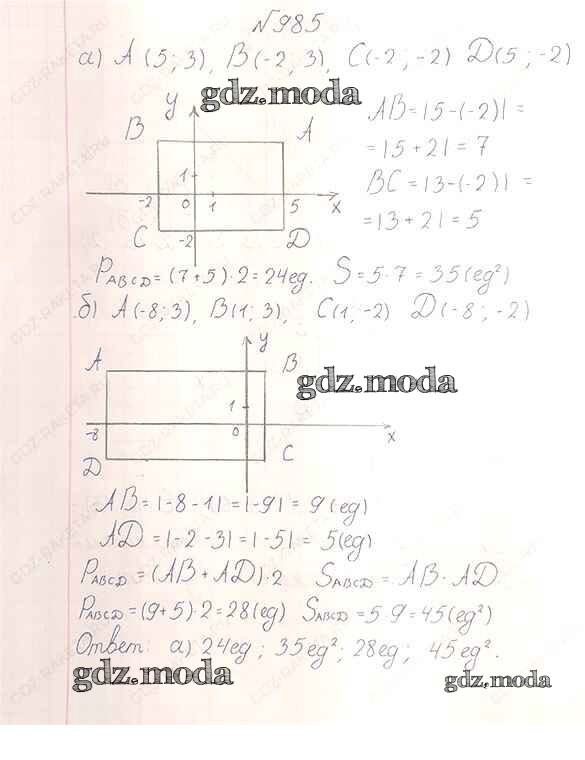 №985
а) A (5; 3), B(-2; 3), C(-2; -2) D(5; -2)
gdz.moda
y
B
A
1
-2
0
1
5
x
C
-2
D
AB = |5-(-2)| =
= |5 + 2| = 7
BC = |3-(-2)| =
= |3 + 2| = 5
P ABCD = (7+5)·2 = 24ед. S = 5·7 = 35(ед²)
б) A(-8; 3), B(1; 3), C(1; -2) D(-8; -2)
y
A
B
gdz.moda
1
-8
0
x
D
C
AB = |-8-1| = |-9| = 9(ед)
AD = |-2-3| = |-5| = 5(ед)
P ABCD = (AB + AD)·2 S ABCD = AB·AD
P ABCD = (9+5)·2 = 28(ед) S ABCD = 5·9 = 45(ед²)
Ответ: а) 24ед; 35ед²; 28ед; 45ед².
gdz.moda
gdz.moda